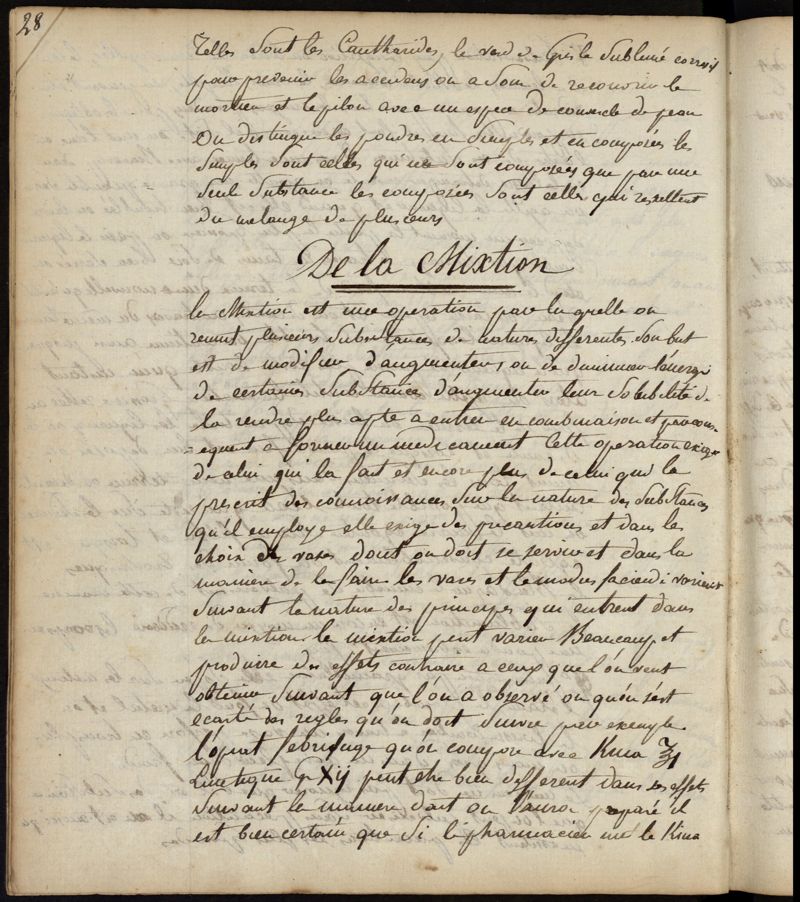 28
Telles sont les Cantharides, le verd de Gris le sublimé corrosif
pour prevenir les accidens on a soin de recouvrir le
mortier et le pilon avec un espece de couvercle de peau
On distingue les poudres en simples et en composées les
simples sont celles qui ne sont composées que par une
seul substance les composées sont celles qui resultent
du melange de plusieurs
De la Mixtion
la Mixtion est une operation par la quelle on
reunit plusieurs substances de natures differentes son but
est de modifier d'augmenter ou de diminuer l'énergie
de certaines substances d'augmenter leur solubilité de
la rendre plus apte a entrer en combinaison et par cons
=equent a former un medicament Cette operation exige
de celui qui la fait et encore plus de celui qui la
prescrit des connoissances sur la nature des substances
qu'il employe elle exige des precautions et dans le
choix des vases dont on doit se servir et dans la
maniere de la faire les vases et le modus faciendi varient
suivant la nature des principes qui entrent dans
la mixtion la mixtion peut varier Beaucoup et
produire des effets contraire a ceux que l'on veut
obtenir suivant que l'on a observé ou qu'on s'est
ecarté des regles qu'on doit suivre par exemple
l'opiat febrifuge qu'on compose avec Kina ℥j
Emetique G XIJ peut etre bien different dans ses effets
suivant la maniere dont on l'aura preparé il
est bien certain que si le pharmacien met le Kina